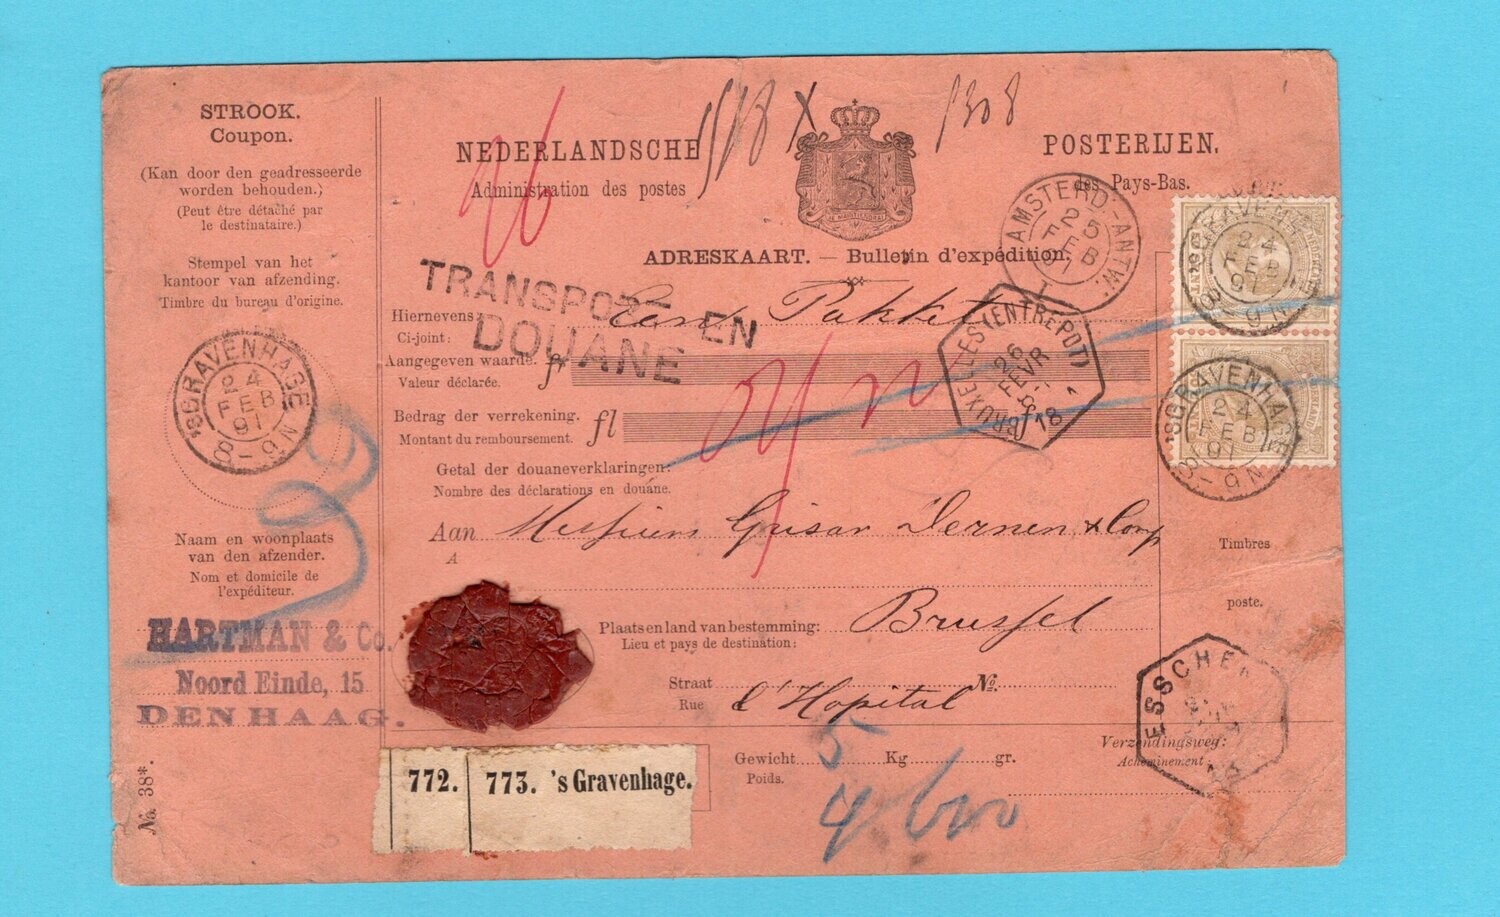 STROOK.
Coupon.
(Kan door den geadresseerde
worden behouden.)
(Peut être détaché par
le destinataire.)
Stempel van het
kantoor van afzending.
Timbre du bureau d'origine.
'SGRAVENHAGE
24
FEB
91
8-9N
Naam en woonplaats
van den afzender.
Nom et domicile de
l'expéditeur.
HARTMAN & Co.
Noord Einde, 15
DEN HAAG.
No. 38*.
NEDERLANDSCHE POSTERIJEN.
Administration des postes des Pays-Bas.
1308
26
JE MAINTIENDRAI
ADRESKAART. — Bulletin d'expédition.
AMSTERD.-ANTW.
25
FEB
91
'SGRAVENHAGE
24
FEB
91
8-9N
TRANSPORT EN
DOUANE
Hiernevens: Een Pakket
Ci-joint:
Aangegeven waarde. fl
Valeur déclarée.
BRUXELLES (ENTREPOT)
26
FEVR
18
Bedrag der verrekening. fl
Montant du remboursement.
'SGRAVENHAGE
24
FEB
91
8-9N
Getal der douaneverklaringen:
Nombre des déclarations en douane.
Aan Messieurs Grisar Dernen & Comp
A
Timbres
poste.
Plaats en land van bestemming: Brussel
Lieu et pays de destination:
Straat No.
Rue d'Hopital
ESSCHEN
Gewicht 5 Kg gr.
Poids.
4 600
Verzendingsweg:
Acheminement
772. 773. 's Gravenhage.